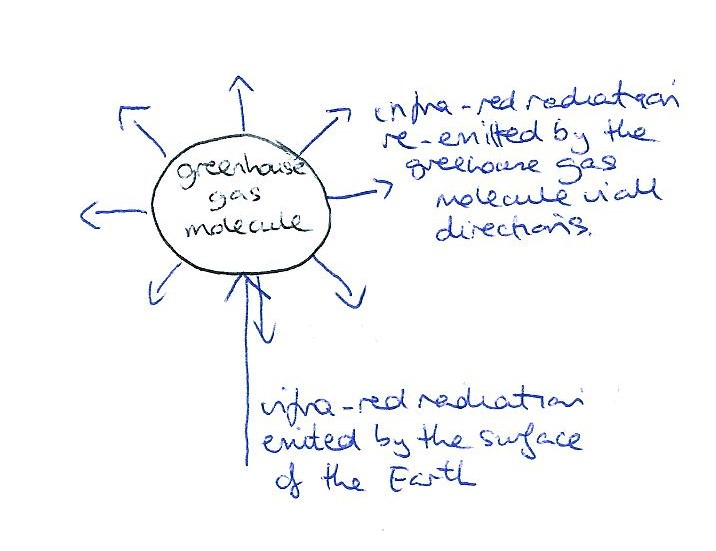 greenhouse
gas
molecule
infra-red radiation
re-emitted by the
greehouse gas
molecule in all
directions.
infra-red radiation
emitted by the surface
of the Earth